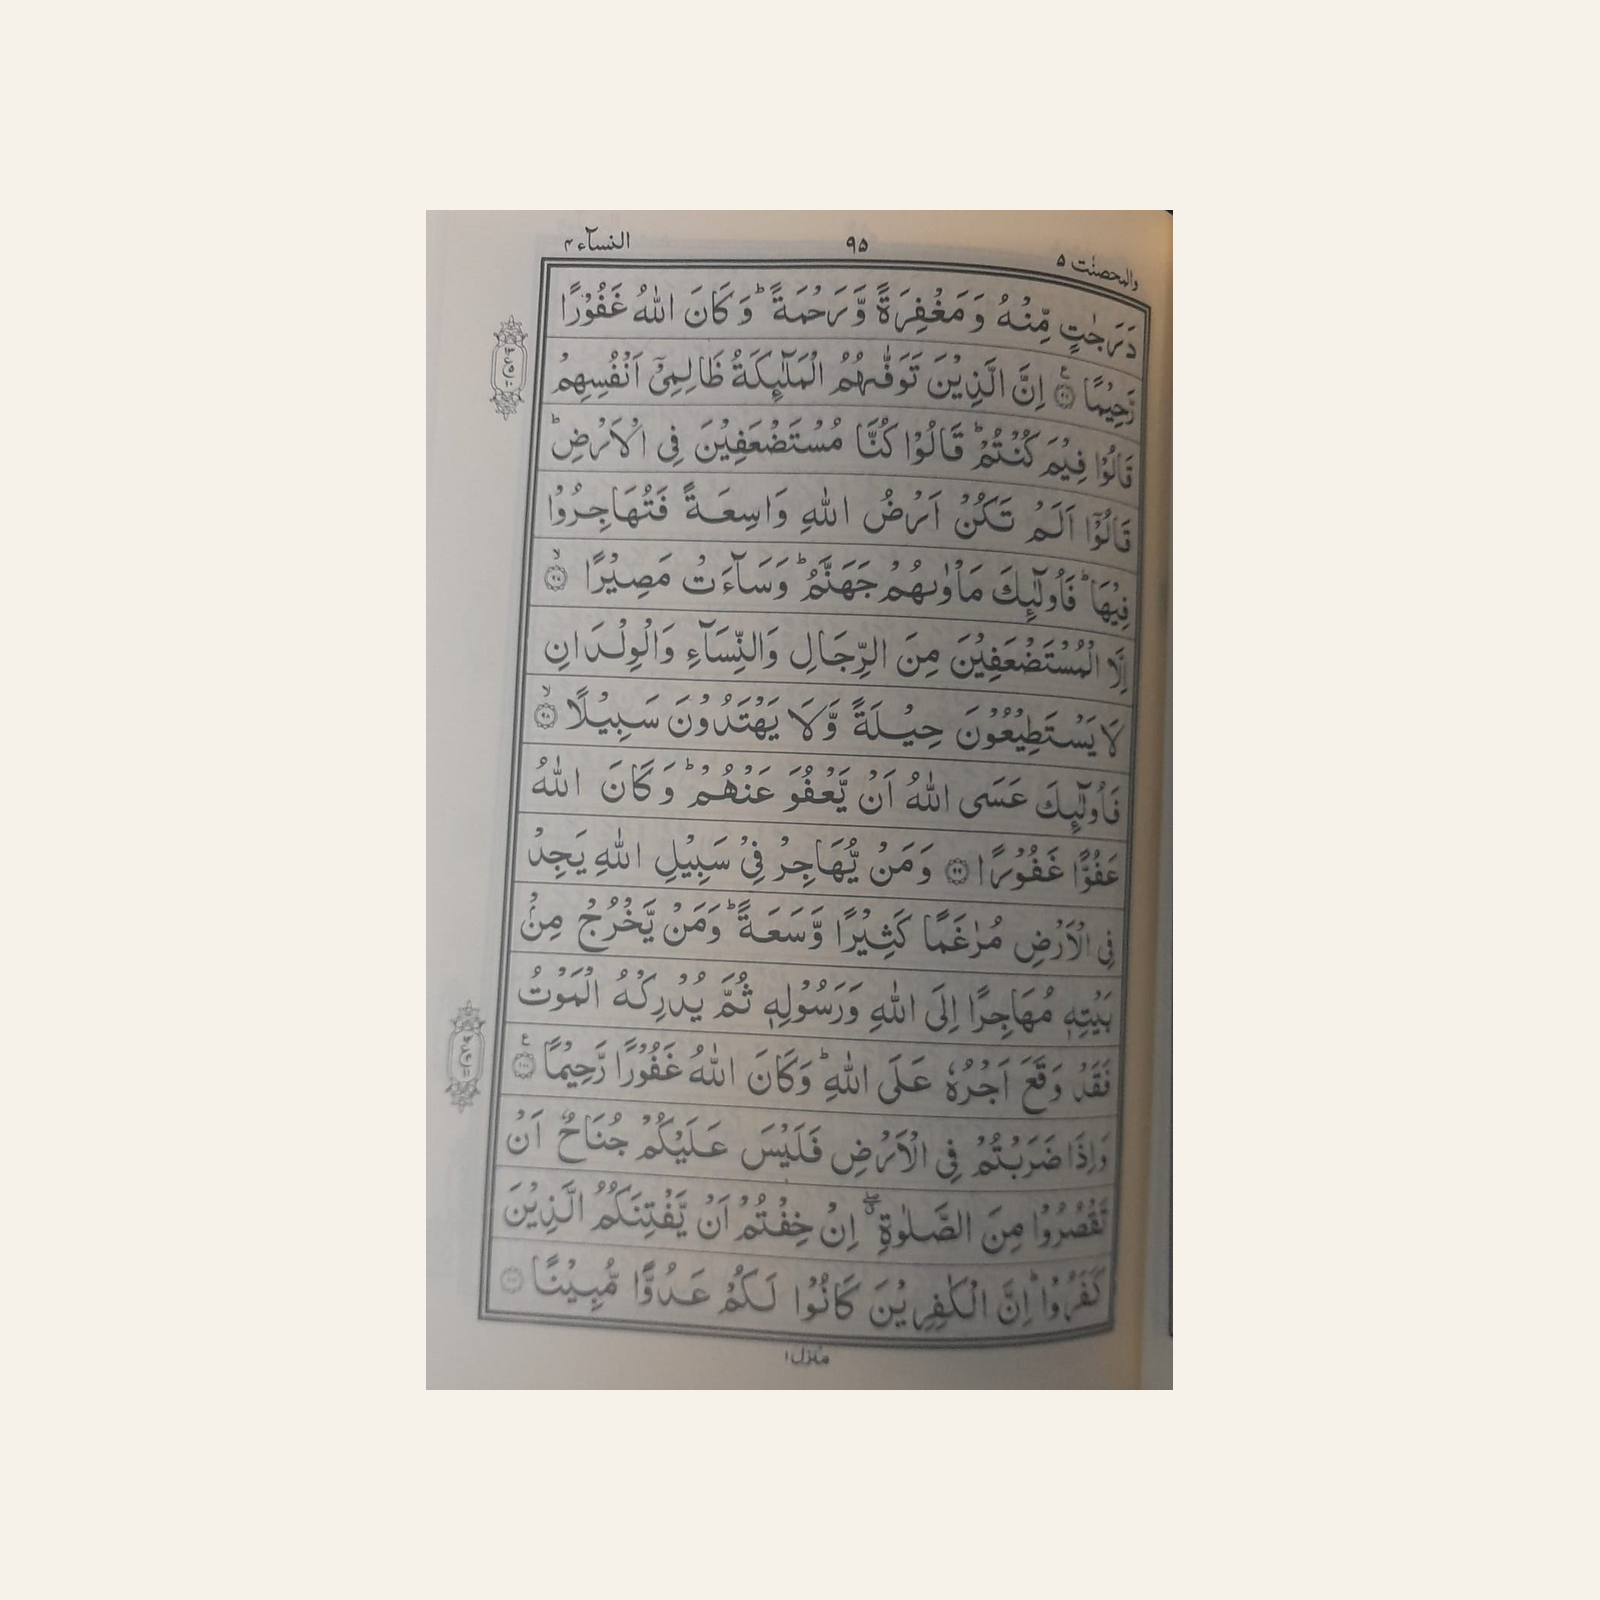 والمحصنٰت ۵ ۹۵ النسآء ۴
دَرَجٰتٍ مِّنْهُ وَمَغْفِرَةً وَّرَحْمَةً ؕ وَكَانَ اللّٰهُ غَفُوْرًا
رَّحِيْمًا ۝۹۶ اِنَّ الَّذِيْنَ تَوَفّٰىهُمُ الْمَلٰٓئِكَةُ ظَالِمِىْٓ اَنْفُسِهِمْ
قَالُوْا فِيْمَ كُنْتُمْ ؕ قَالُوْا كُنَّا مُسْتَضْعَفِيْنَ فِى الْاَرْضِ ؕ
قَالُوْٓا اَلَمْ تَكُنْ اَرْضُ اللّٰهِ وَاسِعَةً فَتُهَاجِرُوْا
فِيْهَا ؕ فَاُولٰٓئِكَ مَاْوٰىهُمْ جَهَنَّمُ ؕ وَسَآءَتْ مَصِيْرًا ۝۹۷ ۙ
اِلَّا الْمُسْتَضْعَفِيْنَ مِنَ الرِّجَالِ وَالنِّسَآءِ وَالْوِلْدَانِ
لَا يَسْتَطِيْعُوْنَ حِيْلَةً وَّلَا يَهْتَدُوْنَ سَبِيْلًا ۝۹۸ ۙ
فَاُولٰٓئِكَ عَسَى اللّٰهُ اَنْ يَّعْفُوَ عَنْهُمْ ؕ وَكَانَ اللّٰهُ
عَفُوًّا غَفُوْرًا ۝۹۹ وَمَنْ يُّهَاجِرْ فِىْ سَبِيْلِ اللّٰهِ يَجِدْ
فِى الْاَرْضِ مُرٰغَمًا كَثِيْرًا وَّسَعَةً ؕ وَمَنْ يَّخْرُجْ مِنْۢ
بَيْتِهٖ مُهَاجِرًا اِلَى اللّٰهِ وَرَسُوْلِهٖ ثُمَّ يُدْرِكْهُ الْمَوْتُ
فَقَدْ وَقَعَ اَجْرُهٗ عَلَى اللّٰهِ ؕ وَكَانَ اللّٰهُ غَفُوْرًا رَّحِيْمًا ۝۱۰۰
وَاِذَا ضَرَبْتُمْ فِى الْاَرْضِ فَلَيْسَ عَلَيْكُمْ جُنَاحٌ اَنْ
تَقْصُرُوْا مِنَ الصَّلٰوةِ ۖ اِنْ خِفْتُمْ اَنْ يَّفْتِنَكُمُ الَّذِيْنَ
كَفَرُوْا ؕ اِنَّ الْكٰفِرِيْنَ كَانُوْا لَكُمْ عَدُوًّا مُّبِيْنًا ۝۱۰۱
منزل ۱